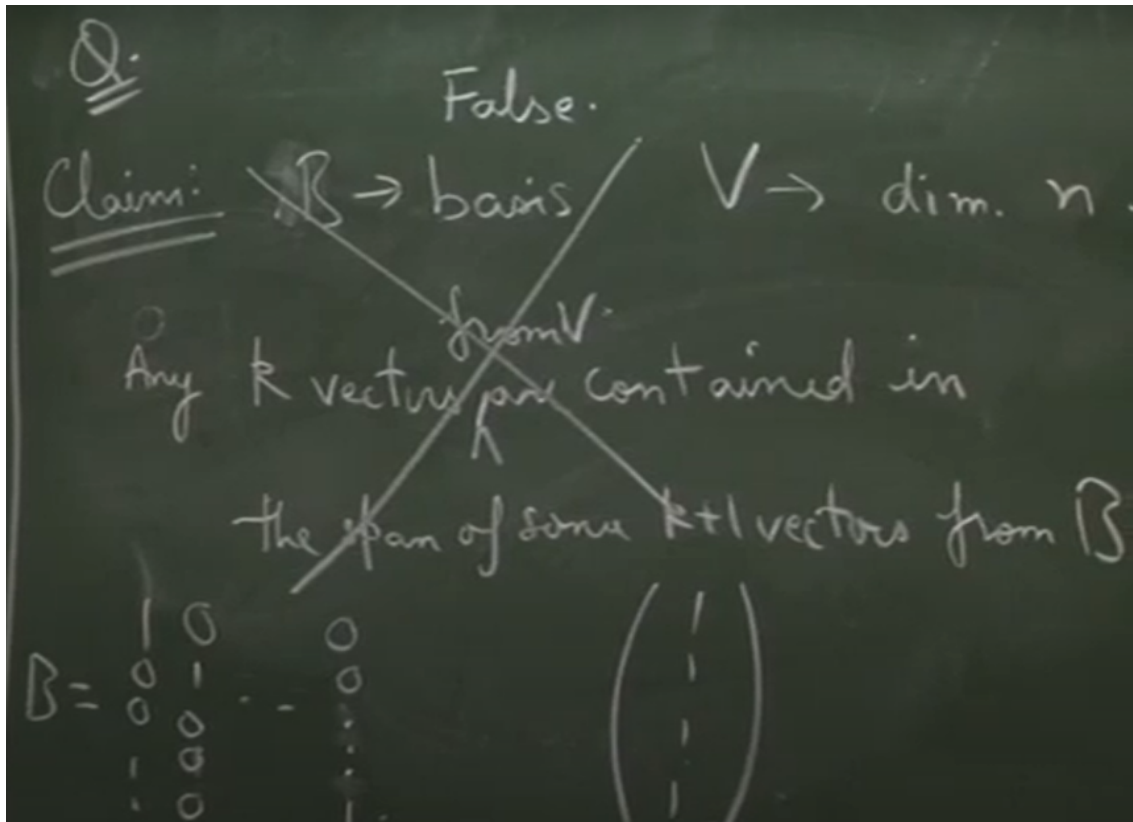 Q.
False.
Claim: B → basis V → dim. n.
from V
Any k vectors are contained in
the span of some k+1 vectors from B
1 0 0 1
B = 0 1 0 1
0 0 . . - .
. 0 . 1
. 0 1. 1